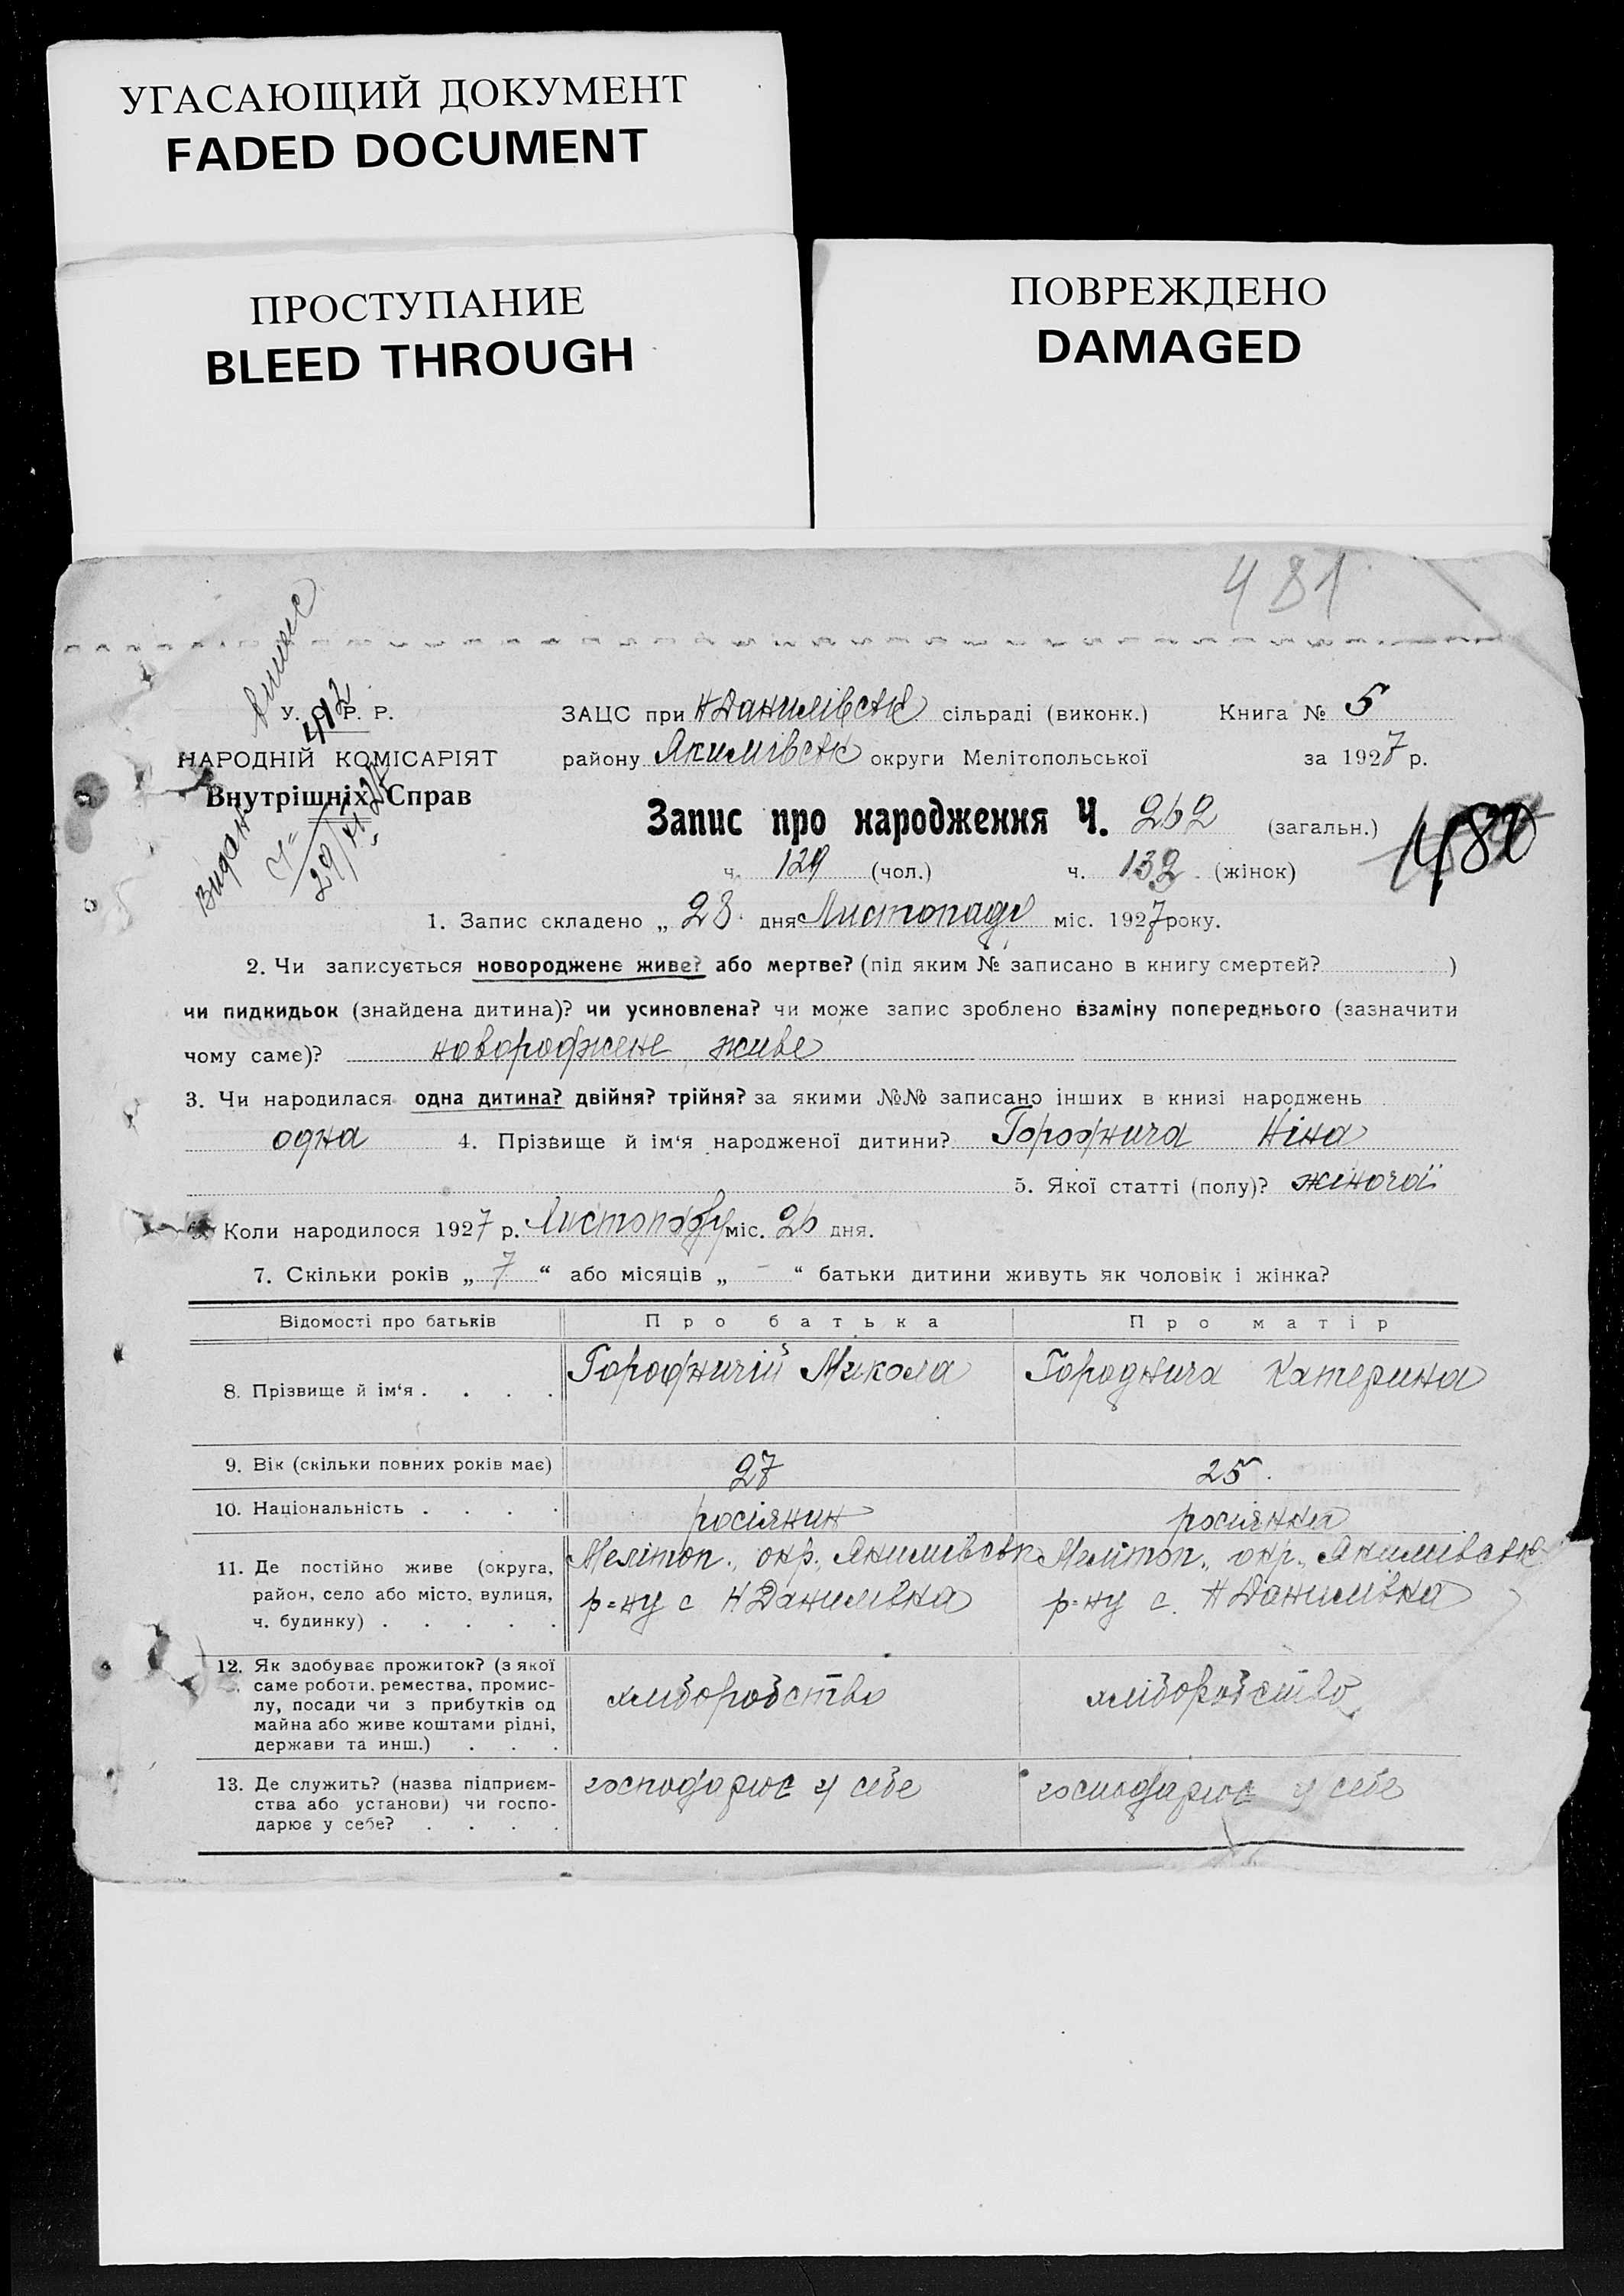 УГАСАЮЩИЙ ДОКУМЕНТ
FADED DOCUMENT
ПРОСТУПАНИЕ
BLEED THROUGH
ПОВРЕЖДЕНО
DAMAGED
481
У. С. Р. Р.
НАРОДНІЙ КОМІСАРІЯТ
Внутрішніх Справ
Видан
ЗАЦС при Н Данилівськ сільраді (виконк.) Книга № 5
району Якимівськ округи Мелітопольської за 1927 р.
Запис про народження Ч. 262 (загальн.)
480
ч. 129 (чол.) ч. 132 (жінок)
1. Запис складено „ 28 дня Листопаду міс. 1927 року.
2. Чи записується новороджене живе? або мертве? (під яким № записано в книгу смертей? )
чи пидкидьок (знайдена дитина)? чи усиновлена? чи може запис зроблено взаміну попереднього (зазначити
чому саме)? новороджене живе
3. Чи народилася одна дитина? двійня? трійня? за якими №№ записано інших в книзі народжень
одна 4. Прізвище й ім‘я народженої дитини? Городнича Ніна
5. Якої статті (полу)? жіночої
6. Коли народилося 1927 р. Листопаду міс. 26 дня.
7. Скільки років „ 7 “ або місяців „ - “ батьки дитини живуть як чоловік і жінка?
Відомості про батьків Про батька Про матір
8. Прізвище й ім‘я . . . . Городничій Микола Городнича Катерина
9. Вік (скільки повних років має) 27 25.
10. Національність . . . . росіянин росіянка
11. Де постійно живе (округа,
район, село або місто, вулиця,
ч. будинку) . . . . .
Мелітоп. окр. Якимівськ
р=ну с Н Данилівка
Мелітоп. окр. Якимівськ
р=ну с. Н Данилівка
12. Як здобуває прожиток? (з якої
саме роботи, ремества, промис-
лу, посади чи з прибутків од
майна або живе коштами рідні,
держави та инш.) . . .
хліборобство
хліборобство
13. Де служить? (назва підприєм-
ства або установи) чи госпо-
дарює у себе? . . . .
господарює у себе
господарює у себе